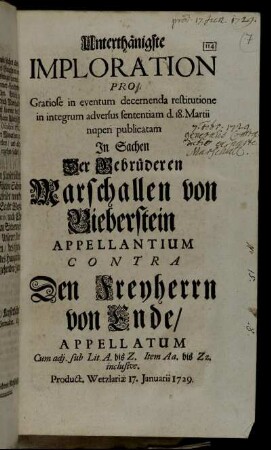 prod. 17 Jan 1729.
(7
114
Unterthänigste
IMPLORATION
PRO
Gratiose in eventum decernenda restitutione
in integrum adversus sententiam d. 18. Martii
nuperi publicatam
In Sachen
Der Gebrüderen
Marschallen von
Bieberstein
APPELLANTIUM
CONTRA
Den Freyherrn
von Ende/
APPELLATUM
Cum adj. sub Lit. A. bis Z. Item Aa. bis Zz.
inclusive.
Product. Wetzlariæ 17. Januarii 1729.